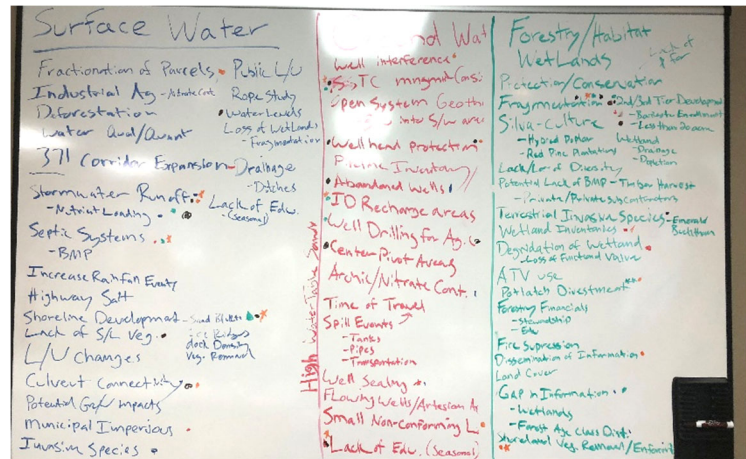 Surface Water
Fractionation of Parcels
Industrial Ag - Nitrate Cont.
Deforestation
Water Qual/Quant
371 Corridor Expansion
Stormwater Runoff
- Nutrient Loading
Septic Systems
- BMP
Increase Rainfall Events
Highway Salt
Shoreline Development - Sand Blankets
Ice Ridges
dock Density
Veg. Removal
Lack of S/L Veg.
L/U Changes
Culvert Connectivity
Potential Impacts
Municipal Impervious
Invasive Species
Public L/U
Rope Study
Water Levels
Loss of Wetlands
- Fragmentation
Drainage
- Ditches
Lack of Edu.
- (Seasonal)
Wat
Well interference
SSTC mngmnt Consi
Open System Geoth
into S/W area
Wellhead protection
Inventory
Abandoned Wells
ID Recharge areas
Well Drilling for Ag.
Center Pivot Areas
Nitrate Cont.
Time of Travel
Spill Events
- Tanks
- Pipes
- Transportation
Well Sealing
Flowing Wells/Artesian
Small Non-Conforming L
Lack of Edu. (Seasonal)
High Water Table
Forestry/Habitat
Wetlands
Lack of
Protection/Conservation
Fragmentation
2nd/3rd Tier Development
- Barrier to Enrollment
- Less than 20 acres
Silva-Culture
- Hybrid Poplar
- Red Pine Plantations
Wetland
- Drainage
- Depletion
Lack/Loss of Diversity
Potential Lack of BMP - Timber Harvest
- Private/Private subcontractors
Terrestrial Invasive Species - Emerald
Buckthorn
Wetland Inventories
Degradation of Wetland
- Loss of Functional Value
ATV use
Potlatch Divestment
Forestry Financials
- Stewardship
- Edu
Fire Supression
Dissemination of Information
Land Cover
Gap in Information
- Wetlands
- Forest Age Class Dist.
Shoreland Veg. Removal/Enforcmt